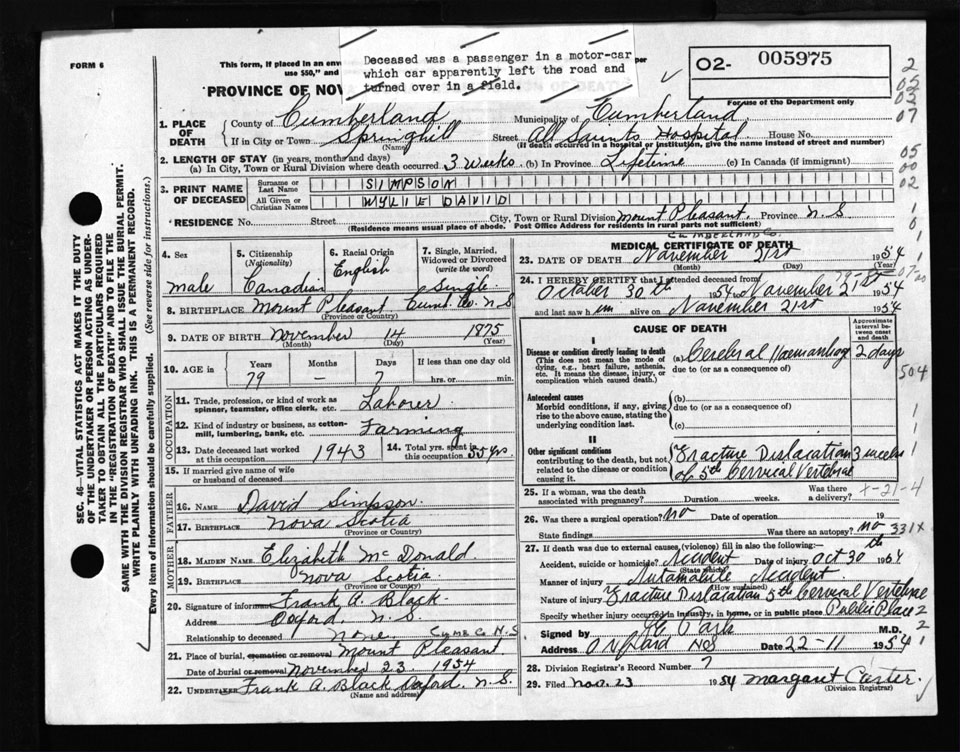 FORM 6
This form, if placed in an env
use $50," and
Deceased was a passenger in a motor-car
which car apparently left the road and
turned over in a field.
02- 005975
For use of the Department only
PROVINCE OF NOV
OF DEATH
1. PLACE OF DEATH
County of Cumberland Municipality of Cumberland
If in City or Town Springhill (Name) Street All Saints Hospital House No.
(If death occurred in a hospital or institution, give the name instead of street and number)
2. LENGTH OF STAY (in years, months and days)
(a) In City, Town or Rural Division where death occurred 3 weeks (b) In Province Lifetime (c) In Canada (if immigrant)
3. PRINT NAME OF DECEASED
Surname or Last Name SIMPSON
All Given or Christian Names WYLIE DAVID
RESIDENCE No. Street City, Town or Rural Division Mount Pleasant Province N.S
(Residence means usual place of abode. Post Office Address for residents in rural parts not sufficient)
CUMBERLAND Co.
4. Sex male
5. Citizenship (Nationality) Canadian
6. Racial Origin English
7. Single, Married, Widowed or Divorced (write the word) Single
8. BIRTHPLACE Mount Pleasant Cumb. Co. N.S
(Province or Country)
9. DATE OF BIRTH November 14 1875
(Month) (Day) (Year)
10. AGE in Years Months Days If less than one day old
79 – 7 hrs. or min.
OCCUPATION
11. Trade, profession, or kind of work as spinner, teamster, office clerk, etc. Laborer
12. Kind of industry or business, as cotton-mill, lumbering, bank, etc. Farming
13. Date deceased last worked at this occupation 1943
14. Total yrs. spent in this occupation 50 yrs
15. If married give name of wife or husband of deceased
FATHER
16. NAME David Simpson
17. BIRTHPLACE Nova Scotia
(Province or Country)
MOTHER
18. MAIDEN NAME Elizabeth McDonald
19. BIRTHPLACE Nova Scotia
(Province or Country)
20. Signature of informant Frank A. Black
Address Oxford, N.S.
Relationship to deceased none. CUMB Co N.S
21. Place of burial, cremation or removal Mount Pleasant
Date of burial or removal November 23, 1954
22. UNDERTAKER Frank A. Black Oxford, N.S.
(Name and address)
MEDICAL CERTIFICATE OF DEATH
23. DATE OF DEATH November 21st 1954
(Month) (Day) (Year)
24. I HEREBY CERTIFY that I attended deceased from
October 30th 1954 to November 21st 1954
and last saw him alive on November 21st 1954
CAUSE OF DEATH
Approximate interval between onset and death
I
Disease or condition directly leading to death
(This does not mean the mode of dying, e.g., heart failure, asthenia, etc. It means the disease, injury, or complication which caused death.)
(a) Cerebral Haemorrhag 2 days
due to (or as a consequence of)
Antecedent causes
Morbid conditions, if any, giving rise to the above cause, stating the underlying condition last.
(b)
due to (or as a consequence of)
(c)
II
Other significant conditions contributing to the death, but not related to the disease or condition causing it.
Fracture Dislocation 3 weeks
of 5th Cervical Vertebrae
25. If a woman, was the death associated with pregnancy? Duration weeks. Was there a delivery?
x-21-4
26. Was there a surgical operation? no Date of operation 19
State findings Was there an autopsy? no 331x
27. If death was due to external causes (violence) fill in also the following:—
Accident, suicide or homicide? Accident Date of injury Oct 30th 1954
(State which)
Manner of injury Automobile Accident
(How sustained)
Nature of injury Fracture Dislocation 5th Cervical Vertebrae
Specify whether injury occurred in industry, in home, or in public place Public Place
Signed by Park M.D.
Address Oxford NS Date 22-11 1954
28. Division Registrar's Record Number 7
29. Filed Nov. 23 1954 Margaret Carter
(Division Registrar)
2
05
02
07
05
00
02
504
SEC. 46—VITAL STATISTICS ACT MAKES IT THE DUTY
OF THE UNDERTAKER OR PERSON ACTING AS UNDER-
TAKER TO OBTAIN ALL THE PARTICULARS REQUIRED
IN THE "REGISTRATION OF DEATH" AND TO FILE THE
SAME WITH THE DIVISION REGISTRAR WHO SHALL ISSUE THE BURIAL PERMIT.
WRITE PLAINLY WITH UNFADING INK. THIS IS A PERMANENT RECORD.
Every item of information should be carefully supplied. (See reverse side for instructions.)